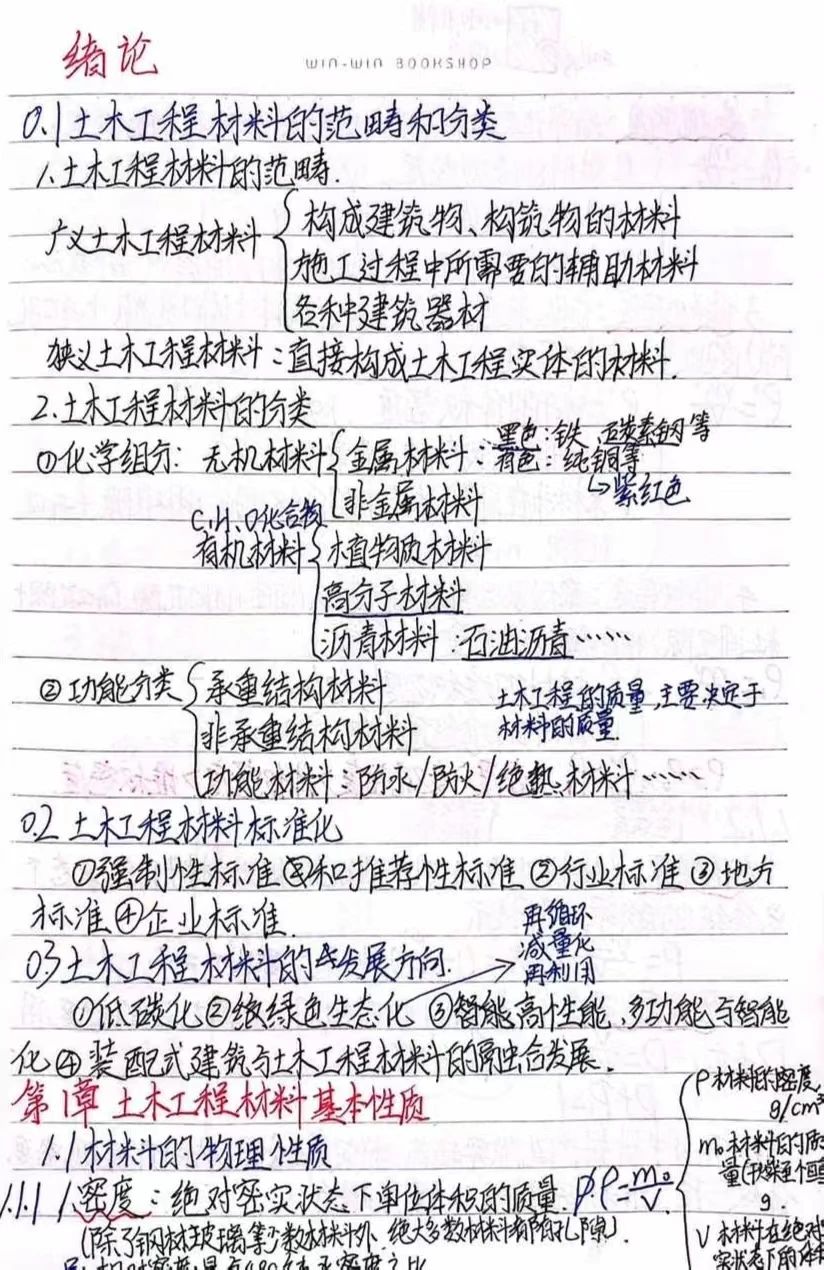 绪论
WIN-WIN BOOKSHOP
0.1土木工程材料的范畴和分类
1.土木工程材料的范畴.
广义土木工程材料
构成建筑物、构筑物的材料
施工过程中所需要的辅助材料
各种建筑器材
狭义土木工程材料:直接构成土木工程实体的材料.
2.土木工程材料的分类
①化学组分: 无机材料
金属材料: 黑色:铁、碳素钢等
有色:纯铜等
↳紫红色
非金属材料
C.H.O化合物
有机材料
植物质材料
高分子材料
沥青材料 石油沥青……
②功能分类
承重结构材料
非承重结构材料
功能材料:防水/防火/绝热材料……
土木工程的质量,主要决定于
材料的质量.
0.2 土木工程材料标准化
①强制性标准和推荐性标准 ②行业标准 ③地方
标准 ④企业标准.
0.3土木工程材料的发展方向.
再循环
减量化
再利用
①低碳化②绿色生态化 ③高性能,多功能与智能
化④装配式建筑与土木工程材料的融合发展.
第1章 土木工程材料基本性质
1.1材料的物理性质
1.1.1 1.密度:绝对密实状态下单位体积的质量. ρ=m₀/V
ρ材料的密度
g/cm³
m₀材料的质
量(干燥至恒重
g.
V 材料在绝对
实状态下的体积
(除了钢材玻璃等少数材料外,绝大多数材料都有孔隙).